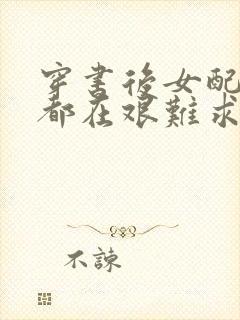 穿書後女配
都在艱難求
不諫